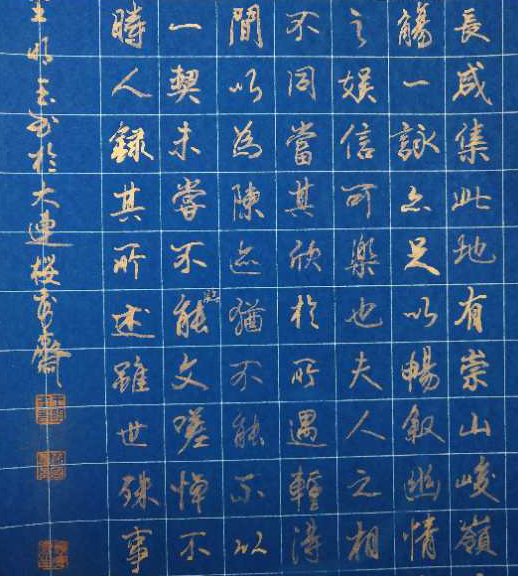 長咸集此地有崇山峻嶺
觴一詠亦足以暢敘幽情
之娛信可樂也夫人之相
不同當其欣於所遇輕得
間以為陳迹猶不能不以
一契未嘗不能文嗟悼不
時人錄其所述雖世殊事
書於大連櫻花齋